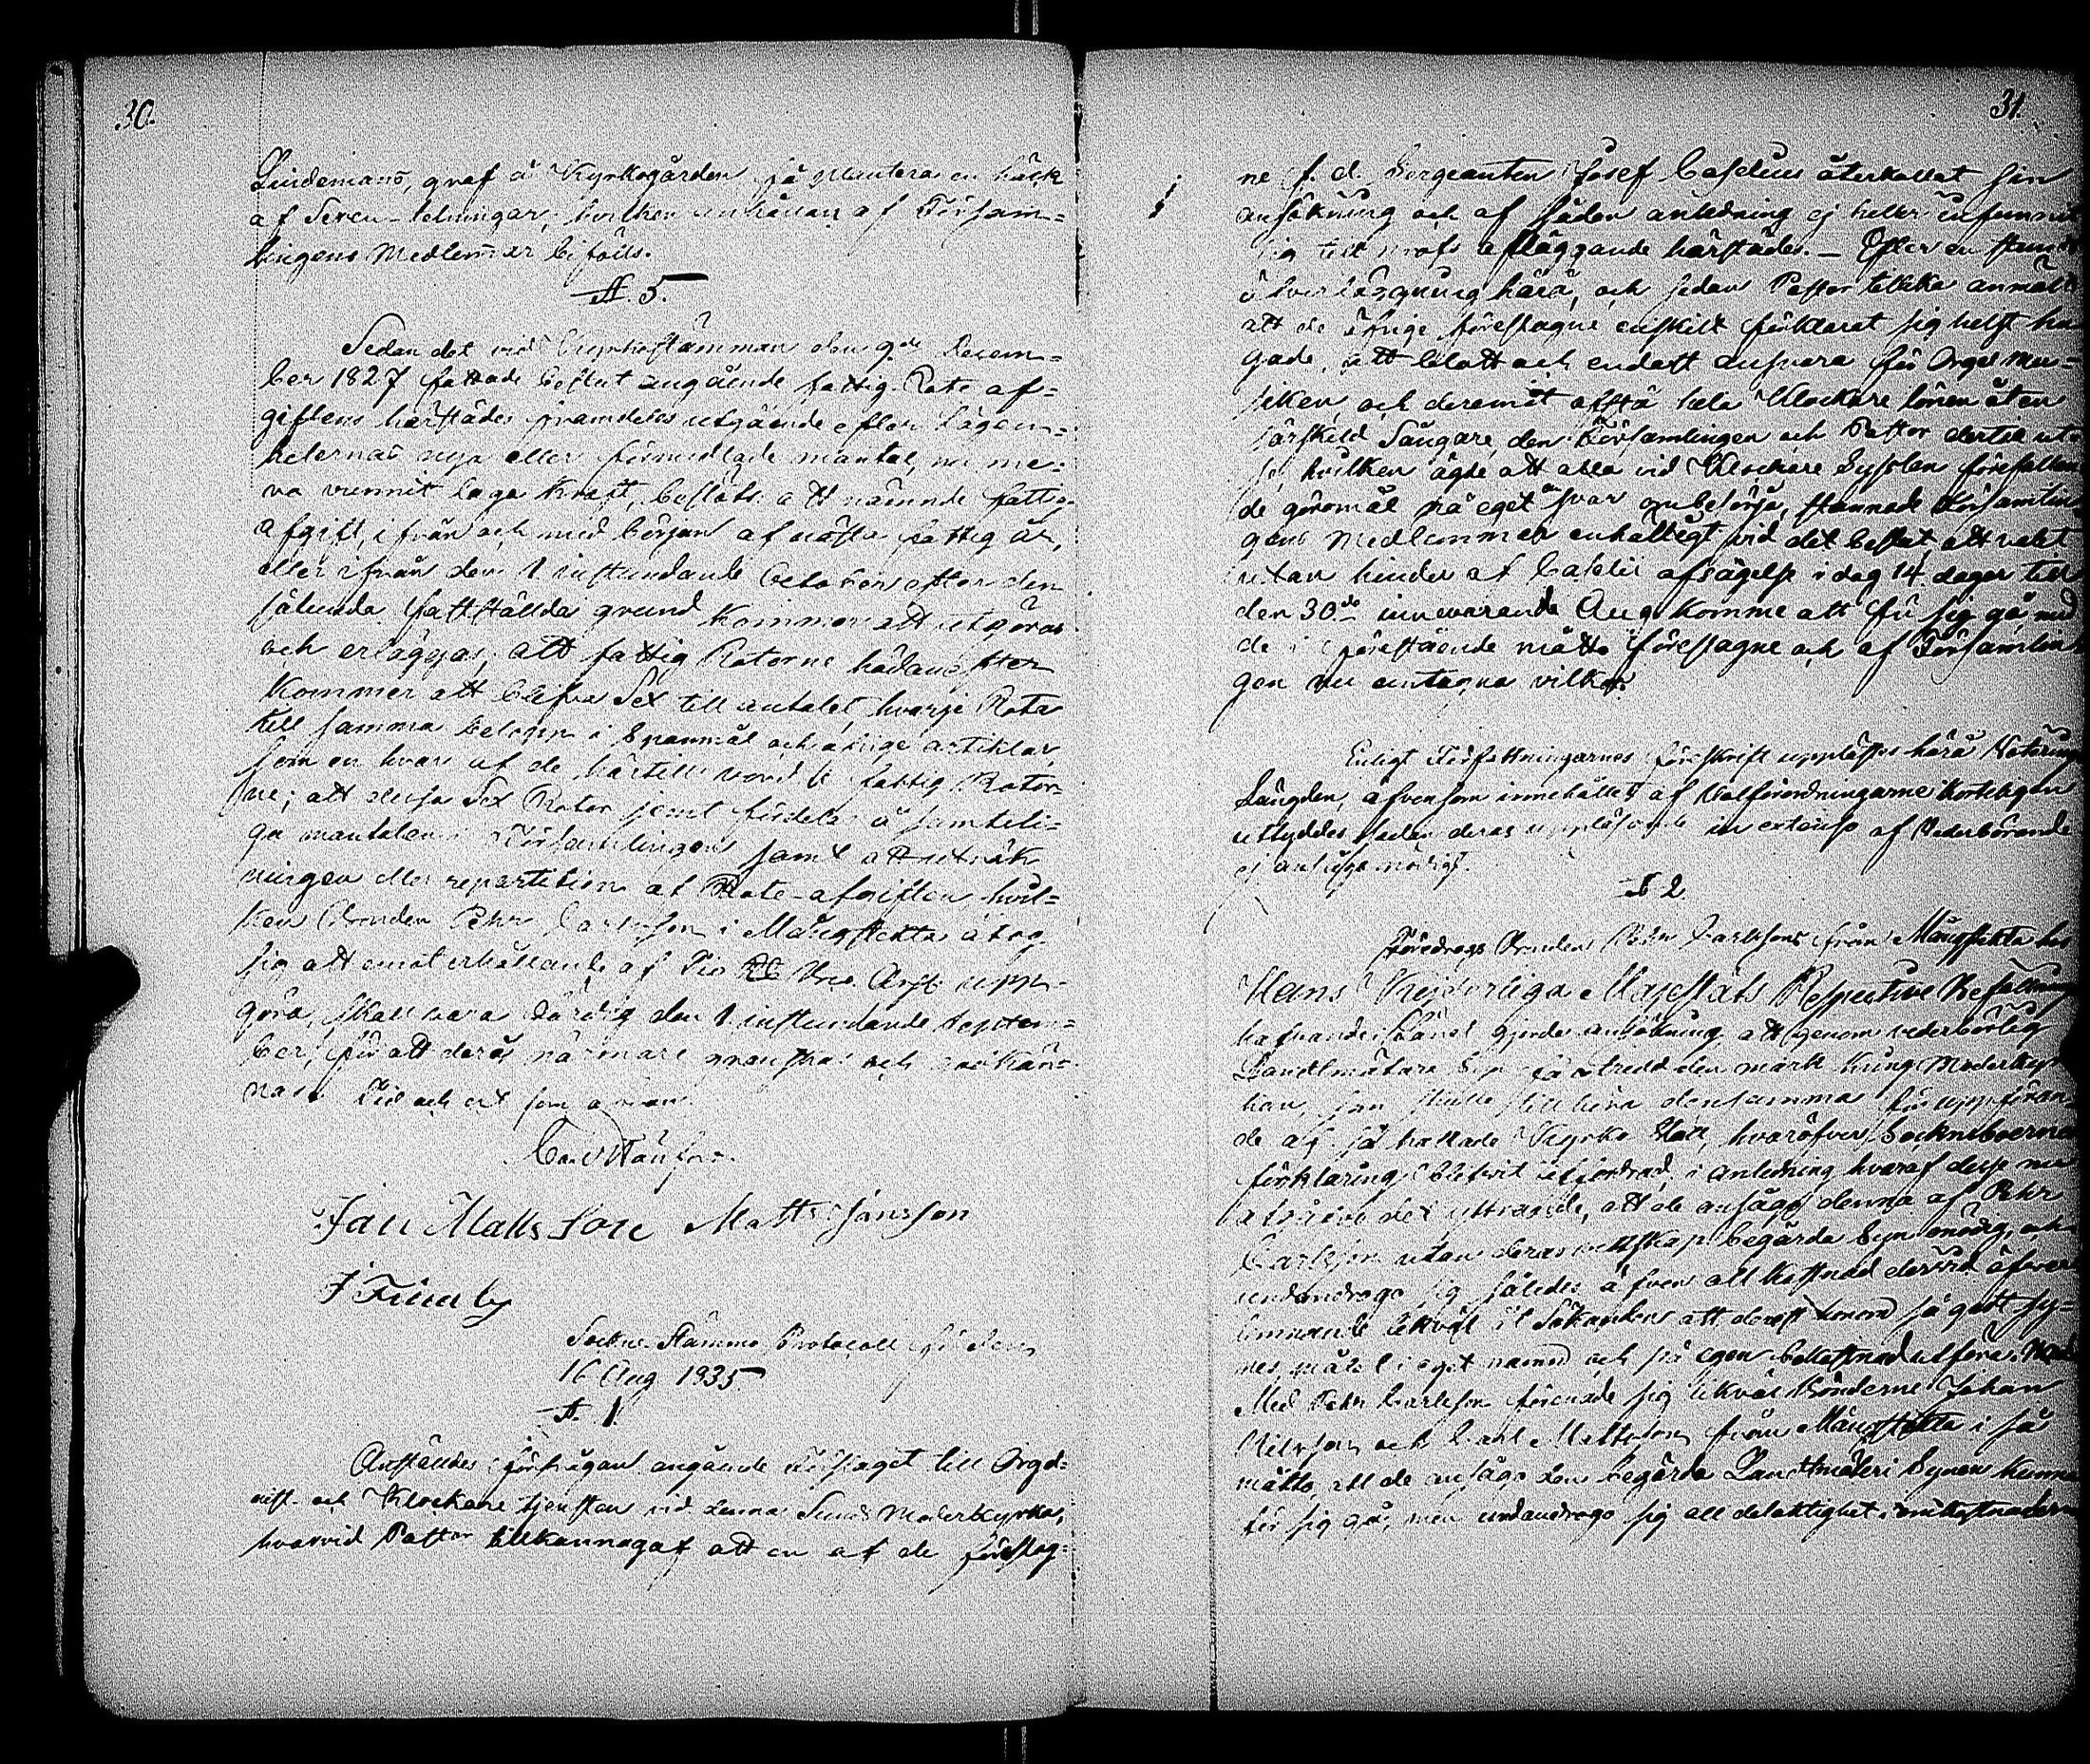 30.
Lindemans, graf å Kyrkogården få plantera en häck
af Siren-telningar, hvilken anhållan af Försam=
lingens Medlemmar bifölls.
§. 5.
Sedan det vid Kyrkostämman den 9de Decem=
ber 1827 fattade beslut angående fattig-Rote af=
giftens härstädes framdeles utgående efter Lägen=
heternas nya eller förmedlade mantal, nu me=
ra vunnit laga Kraft, beslöts att nämnde fattig-
afgift, ifrån och med början af nästa fattig år,
eller ifrån den 1 instundande October efter den
sålunda fastställda grund kommer att utgöras
och erläggas; att fattig Rotorne hädanefter
kommer att blifva Sex till antalet, hvarje Rota
till samma belopp i Spannmål och öfrige artiklar,
som en hvar af de härtills varit fattig Rotor=
ne; att dessa Sex Rotor jemt fördelas å samteli=
ga mantalen i Församlingen samt att uträk
ningen eller repartition af Rote-afgiften hvil=
ken Bonden Pehr Carlsson i Mångstekta åtog
sig att emot erhållande af Tio Rd Bco Arfv. upp=
göra, skall vara färdig den 1 instundande Septem=
ber, för att deras närmare granskas och godkän=
nas. Tid och ort som ofvan.
Jan Matts Son Matts Jansson
J Fineby
Sockne Stämmo Protocoll för den
16 Aug 1835.
§. 1
Anstäldes förfrågan angående förslaget till Orga=
nist- och Klockare tjensten vid denna Sunds Moderkyrka,
hvarvid Pastor tillkännagaf att en af de föreslag=
31.
ne f. d. Sergeanten Josef Caselius återkallat sin
ansökning och af sådan anledning ej heller infunnit
sig till profs afläggande härstädes. — Efter en stunds
öfverläggning härå, och sedan Pastor tillika anmält
att de öfrige föreslagne enskilt förklarat sig helst ha
gade, att blott och endast ansvara för Orgel Mu=
siken, och deremot afstå hela Klockare lönen åt en
särskild Sångare, den Församlingen och Pastor dertill ut
se, hvilken ägde att alla vid Klockare Sysslan förefallan
de göromål på eget svar ombesörja, stannade Församlin
gens Medlemmar enhälligt vid det beslut, att valet
utan hinder af Caselii afsägelse i dag 14 dagar till
den 30de innevarande Aug. komme att för sig gå, med
de i föreskrifne måtto föreslagne och af Församlin
gen nu antagna vilkor.
Enligt Författningarnes föreskrift upplästes härå Voterings
Längden, äfvensom innehållet af Valförordningarne i korthet
uttyddes, sedan deras uppläsande in extenso af Vederbörande
ej ansågs nödigt.
§ 2.
Föredrogs Bonden Pehr Carlssons från Mångstekta hos
Hans Kejserliga Majestäts Respective Befallnings
hafvande i Länet gjorde ansökning att genom vederbörlig
Landtmätare Syn få utredd den mark kring Moderkyr
kan, som skulle tillhöra densamma för uppföran=
de af så kallade Kyrko Stall, hvaröfver Socknboerna
förklaring blifvit infordrad, i anledning hvaraf desse nu
afgåfvo det yttrande, att de ansågo denna af Pehr
Carlsson utan deras vettskap begärda Syn onödig, och
undandrogo sig således äfven all kostnad dervid öfver
lemnande likväl åt Sökanden att derest honom så godt sy=
nes, målet i eget namn och på egen bekostnad utföra.
Med Pehr Carlsson förenade sig likväl Bönderne Johan
Nilsson och Carl Mattsson från Mångstekta i så
måtto, att de ansågo den begärda Landtmäteri Synen kunna
för sig gå, men undandrogo sig all delaktighet i omkostnaderna